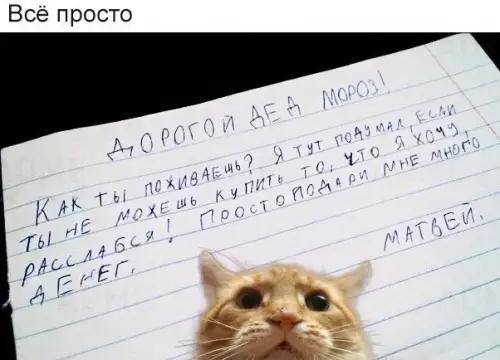 Всё просто
ДОРОГОЙ ДЕД МОРОЗ!
КАК ТЫ ПОЖИВАЕШЬ? Я ТУТ ПОДУМАЛ, ЕСЛИ
ТЫ НЕ МОЖЕШЬ КУПИТЬ ТО, ЧТО Я ХОЧУ,
РАССЛАБСЯ! ПРОСТО ПОДАРИ МНЕ МНОГО
ДЕНЕГ.
МАТВЕЙ.